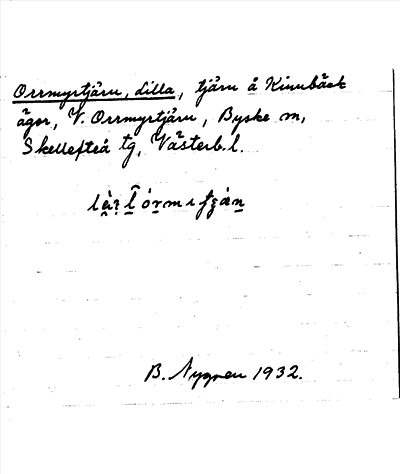 Orrmyrtjärn, Lilla, tjärn å Kinnbäck
ägor, V. Orrmyrtjärn, Byske sn,
Skellefteå tg, Västerb. l.
B. Nygren 1932.